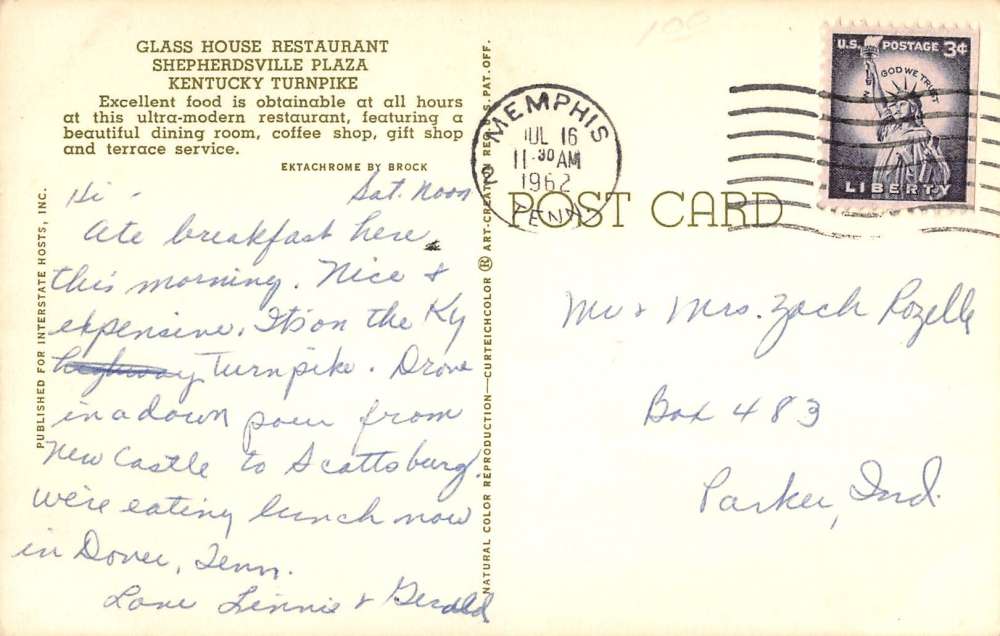 GLASS HOUSE RESTAURANT
SHEPHERDSVILLE PLAZA
KENTUCKY TURNPIKE
Excellent food is obtainable at all hours
at this ultra-modern restaurant, featuring a
beautiful dining room, coffee shop, gift shop
and terrace service.
EKTACHROME BY BROCK
Hi - Sat. Noon
Ate breakfast here
this morning. Nice &
expensive. It's on the Ky
highway Turnpike. Drove
in a down pour from
New Castle to Scottsburg.
We're eating lunch now
in Dover, Tenn.
Love Linnie & Gerald
PUBLISHED FOR INTERSTATE HOSTS, INC.
NATURAL COLOR REPRODUCTION—CURTEICHCOLOR ® ART-CREATION REG. U.S. PAT. OFF.
POST CARD
MEMPHIS
2
JUL 16
11 30 AM
1962
TENN
U.S. POSTAGE 3¢
IN GOD WE TRUST
LIBERTY
Mr & Mrs. Zach Rozelle
Box 483
Parker, Ind.